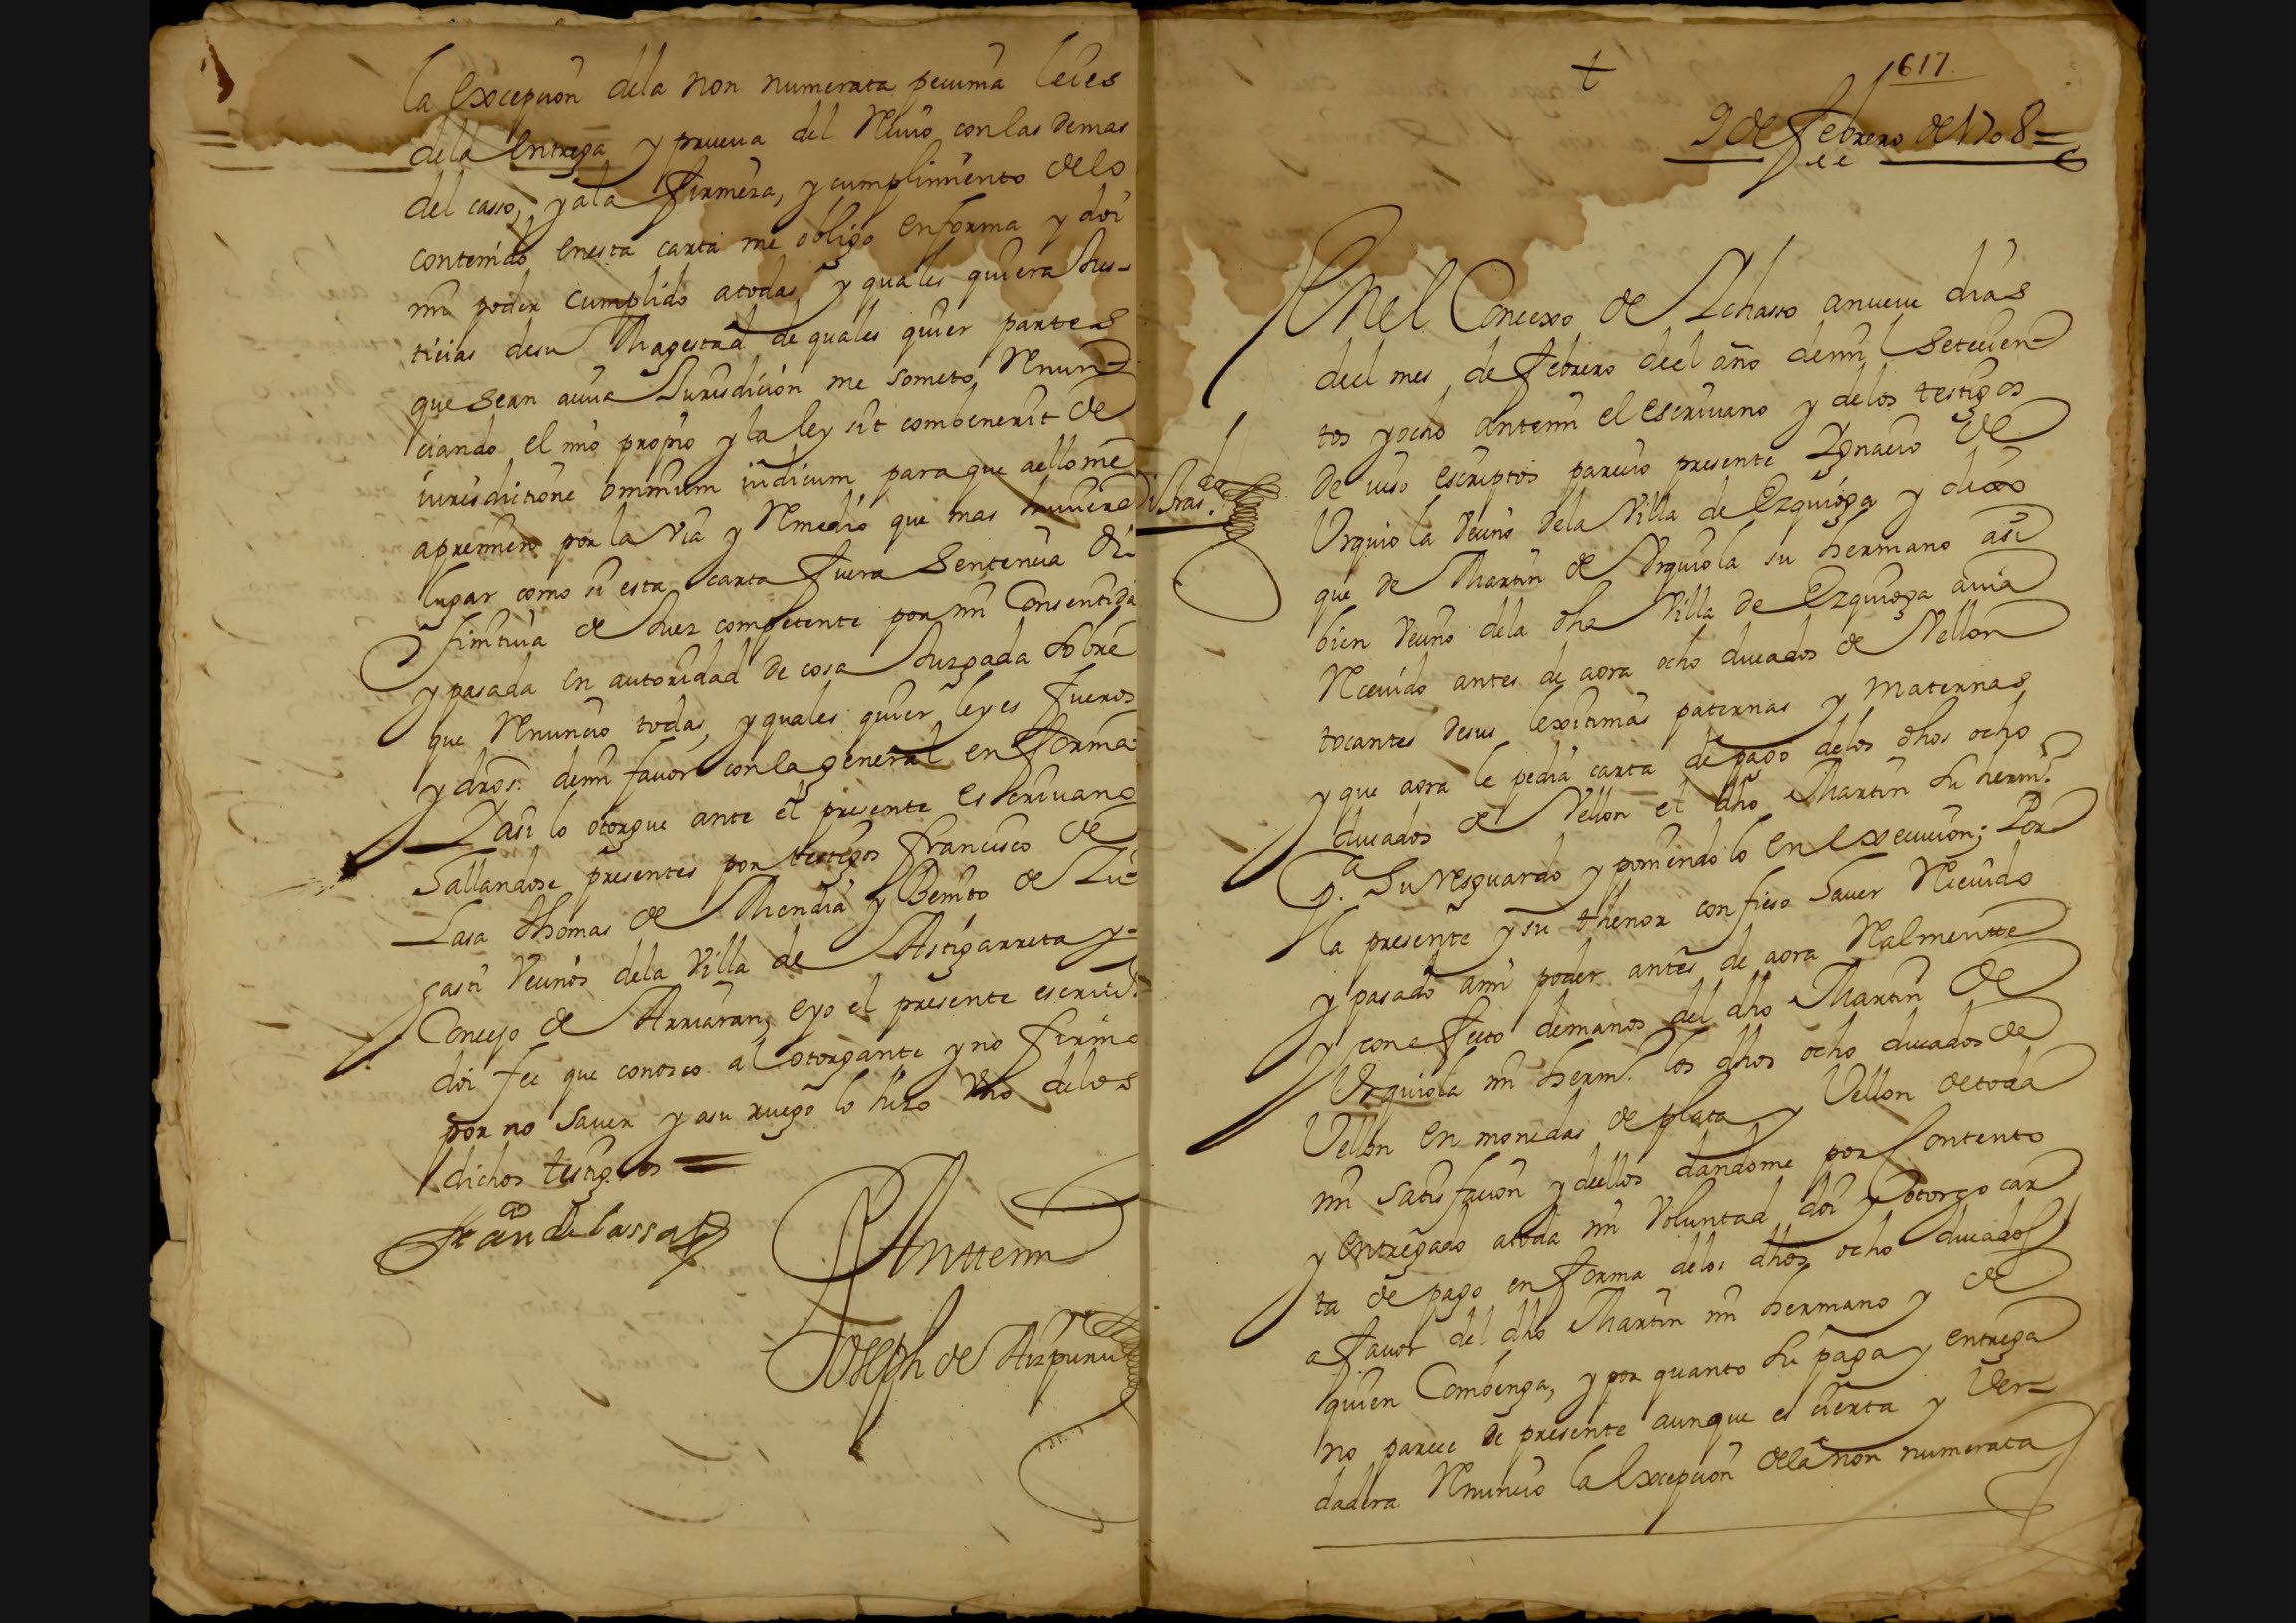 la Excepcion dela non numerata pecunia leies
dela entrega y prueua del Reciuo con las demas
del casso, y ala firmeza, y cumplimiento delo
contenido enesta carta me obligo enforma y doi
mi poder cumplido atodas y quales quiera Jus-
ticias desu Magestad de quales quier partes
que sean acuia Jurisdicion me someto Renun-
ciando el mio propio y la ley sit combenerit de
iurisdictione omnium iudicum para que aello me
apremien por la via y Remedio que mas huuiere
lugar como si esta carta fuera Sentencia di-
finitiua de Juez competente por mi Consentida
y pasada en autoridad de cosa Juzgada sobre
que Renuncio todas, y quales quier leyes fueros
y dros. demi fauor con la general en forma
Y asi lo otorgue ante el presente escriuano
hallandose presentes por testigos francisco de
Lasa thomas de Mendia y Benito de Zu-
gasti Vecinos dela Villa de Astigarreta y-
Concejo de Arriaran, eyo el presente escriu.o
doi fee que conosco al otorgante y no firmo
por no sauer y asu ruego lo hizo Vno delos
dichos testigos =
franco de lassa
Anttemi
Joseph de Aizpuru
t
617.
9 de febrero de 1708 =
En el Concexo de Ichasso anueue dias
deel mes de febrero deel año demil setecien-
tos yocho antemi el escriuano y delos testigos
de iuso escriptos parecio presente Ygnacio de
Vrquiola Vecino dela Villa de Ezquioga y dixo
que de Martin de Vrquiola su hermano asi
bien Vecino dela dha Villa de Ezquioga auia
Receuido antes de aora ocho ducados de Vellon
tocantes desus lexitimas paternas y maternas
y que aora le pedia carta de pago delos dhos ocho
ducados de Vellon el dho Martin su herm.o
p.a Su resguardo y poniendolo en execucion; Por
la presente y su thenor confieso hauer Receuido
y pasado ami poder antes de aora Realmentte
y con efecto demanos del dho Martin de
Vrquiola mi herm.o los dhos ocho ducados de
Vellon en monedas de plata y Vellon detoda
mi satisfacion y dellos dandome por Contento
y entregado atoda mi Voluntad doi y otorgo car
ta de pago en forma delos dhos ocho ducados
a fauor del dho Martin mi hermano y de
quien Combenga, y por quanto su paga y entrega
no parece de presente aunque es cierta y Ver-
dadera Renuncio la Excepcion dela non numerata